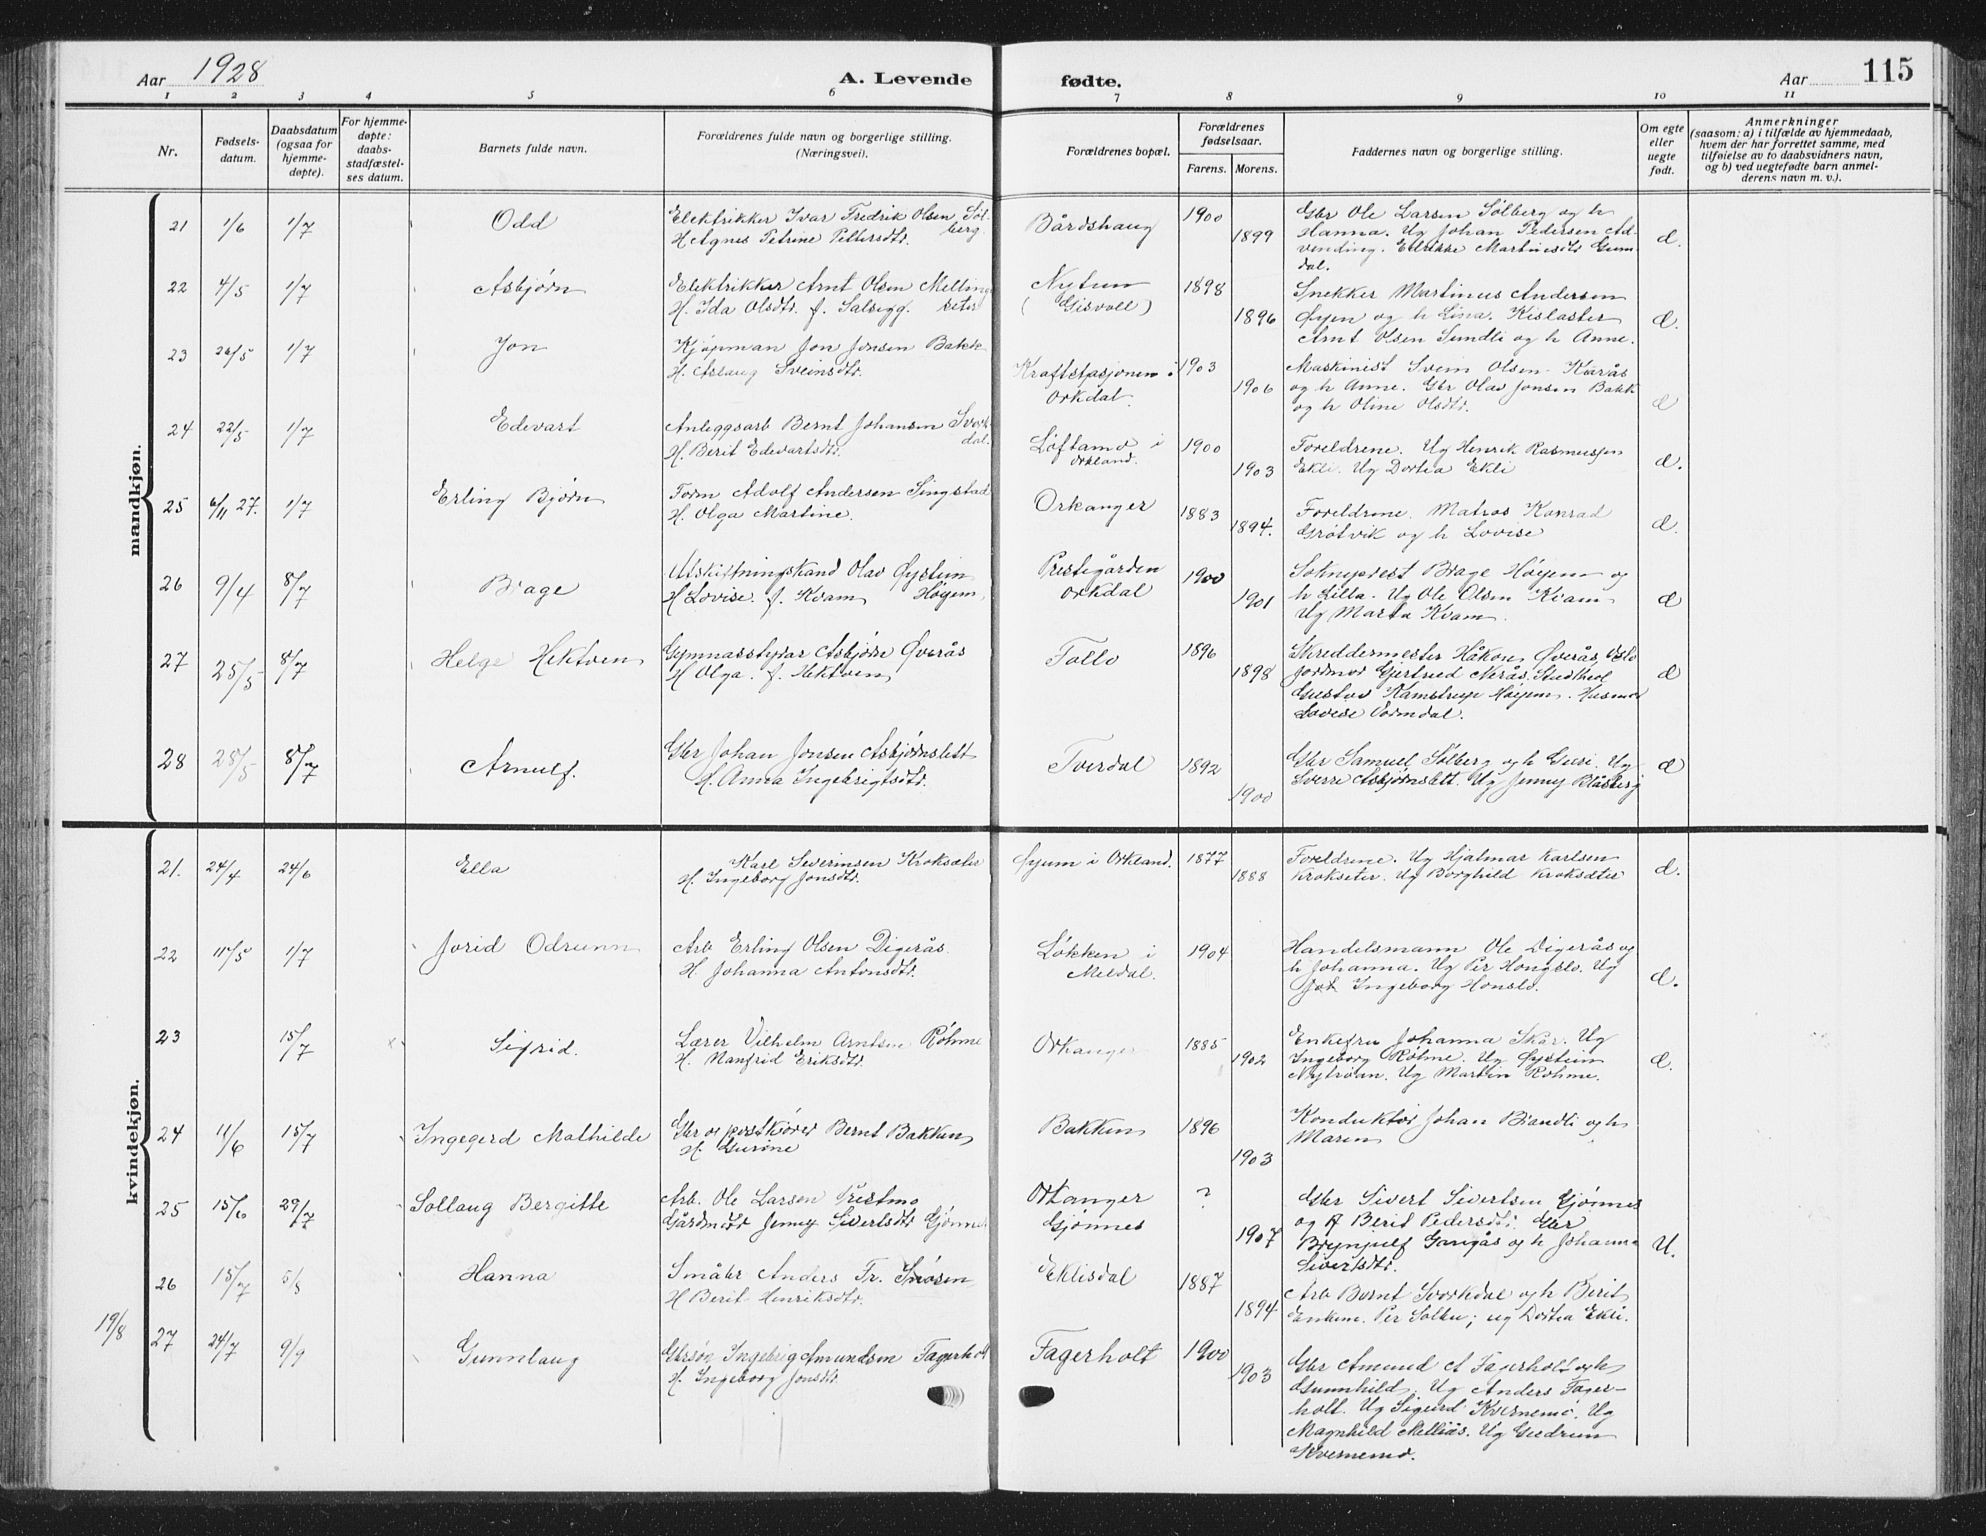 Aar 1928
A. Levende
fødte.
Aar
115
1 2 3 4 5 6 7 8 9 10 11
Nr.
Fødsels-
datum.
Daabsdatum
(ogsaa for
hjemme-
døpte).
For hjemme-
døpte:
daabs-
stadfæstel-
ses datum.
Barnets fulde navn.
Forældrenes fulde navn og borgerlige stilling.
(Næringsvei).
Forældrenes bopæl.
Forældrenes
fødselsaar.
Farens. Morens.
Faddernes navn og borgerlige stilling.
Om egte
eller
uegte
født.
Anmerkninger
(saasom: a) i tilfælde av hjemmedaab,
hvem der har forrettet samme, med
tilføielse av to daabsvidners navn,
og b) ved uegtefødte barn anmel-
derens navn m. v.).
mandkjøn.
21 1/6 1/7 Odd
Elektrikker Ivar Fredrik Olsen Søl-
berg.
H Agnes Petrine Pettersdtr.
Bårdshaug
1900
1899
Gbr Ole Larsen Sølberg og h
Hanna. Ug Johan Pedersen Ad-
vending. Martinsdtr Gum-
dal.
22 4/5 1/7 Asbjørn
Elektrikker Arnt Olsen Melling
seter
H. Ida Olsdtr. f. Salsegg.
Nytun
(Gisvoll)
1898
1896
Snekker Martinus Andersen
Øyen og h Lina. Kislaster
Arnt Olsen Sundli og h Anne.
23 26/5 1/7 Jon
Kjøpman Jon Jonsen Bakk
H. Aslaug Sveinsdtr.
Kraftstasjonen i
Orkdal.
1903
1906
Maskinist Svein Olsen Kårås
og h Anne. Gbr Olav Jonsen Bakk
og h Oline Olsdtr.
24 22/5 1/7 Edevart
Anleggsarb Bernt Johansen Svork
dal.
H. Berit Edevartsdtr.
Løftamo i
Orkland.
1900
1903
Foreldrene. Ug Henrik Rasmussen
Ekli. Ug Dortea Ekli
25 6/11 27. 1/7 Erling Bjørn
Form Adolf Andersen Singstad
H. Olga Martine.
Orkanger
1883
1894.
Foreldrene. Matros Konrad
Grøtvik og h Lovise
26 9/4 8/7 Brage
Utskiftningskand Olav Øystein
Høyem
H Lovise. f. Kvam
Prestegården
Orkdal
1900
1901
Sokneprest Brage Høyem og
h Lilla. Ug Ole Olsen Kvam
Ug Marta Kvam.
27 25/5 8/7 Helge Hektoen
Gymnasstyrar Asbjørn Øverås
H Olga. f. Hektoen
Follo
1896
1898
Skreddermester Håkon Øverås Oslo
Jordmor Gjertrud Nerås. Studteol
Gustav Kamstrup Høyem. Husmor
Lovise Vormdal.
28 28/5 8/7 Arnulf.
Gbr Johan Jonsen Asbjørnslett
H. Anna Ingebrigtsdtr.
Tverdal
1892
1900
Gbr Samuel Sølberg og h Guri. Ug
Sverre Asbjørnslett. Ug Jenny Blåsberg
kvindekjøn.
21. 24/4 24/6 Ella
Karl Severinsen Kroksæter
H. Ingeborg Jonsdtr.
Øyum i Orkland.
1877
1888
Foreldrene. Ug Hjalmar Karlsen
Krokseter. Ug Borghild Kroksæter
22 11/5 1/7 Jorid Odrunn
Arb Erling Olsen Digerås.
H. Johanna Antonsdtr.
Løkken i
Meldal.
1904
Handelsmann Ole Digerås og
h Johanna. Ug Per Hongslo. Ug
Ingeborg Honslo.
23 15/7 Sigrid.
Lærer Vilhelm Arntsen Røhme
H. Manfrid Eriksdtr.
Orkanger
1885
1902
Enkefru Johanna Skår. Ug
Ingeborg Røhme. Ug Øystein
Nytrøan. Ug Martin Røhme.
24 11/6 15/7 Ingegerd Mathilde
Gbr og postkører Bernt Bakken
H. Gurine
Bakken
1896
1903
Konduktør Johan Brandli og h
Maren
25 15/6 29/7 Sollaug Bergitte
Arb. Ole Larsen Prestmo
Gårdmdtr Jenny Sivertsdtr Gjønne
Orkanger
Gjønnes
?
1907
Gbr Sivert Sivertsen Gjønnes
og h Berit Pedersdtr. Gbr
Brynjulf Gangås og h Johanna
Sivertsdtr.
U.
26 15/7 5/8 Hanna
Småbr Anders Fr. Snøsen
H Berit Henriksdtr.
Eklisdal
1887
1894
Arb Bernt Svorkdal og h Berit
Enkem. Per Solbu; ug Dortea Ekli.
19/8
27 24/7 9/9 Gunnlaug
Gbrsøn Ingebrig Amundsen Fagerholt
H. Ingeborg Jonsdtr.
Fagerholt
1900
1903
Gbr Amund A Fagerholt og h
Gunnhild. Ug Anders Fager-
holt. Ug Sigurd Kvernemo. Ug
Magnhild Melliås. Ug Gudrun
Kvernemo.